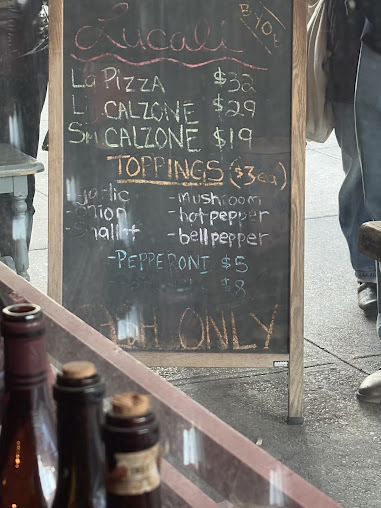 Lucali
BYO
La PIZZA $32
L CALZONE $29
Sm CALZONE $19
TOPPINGS ($3ea)
-garlic -mushroom
-onion -hotpepper
-shallot -bellpepper
-PEPPERONI $5
$8
CASH ONLY